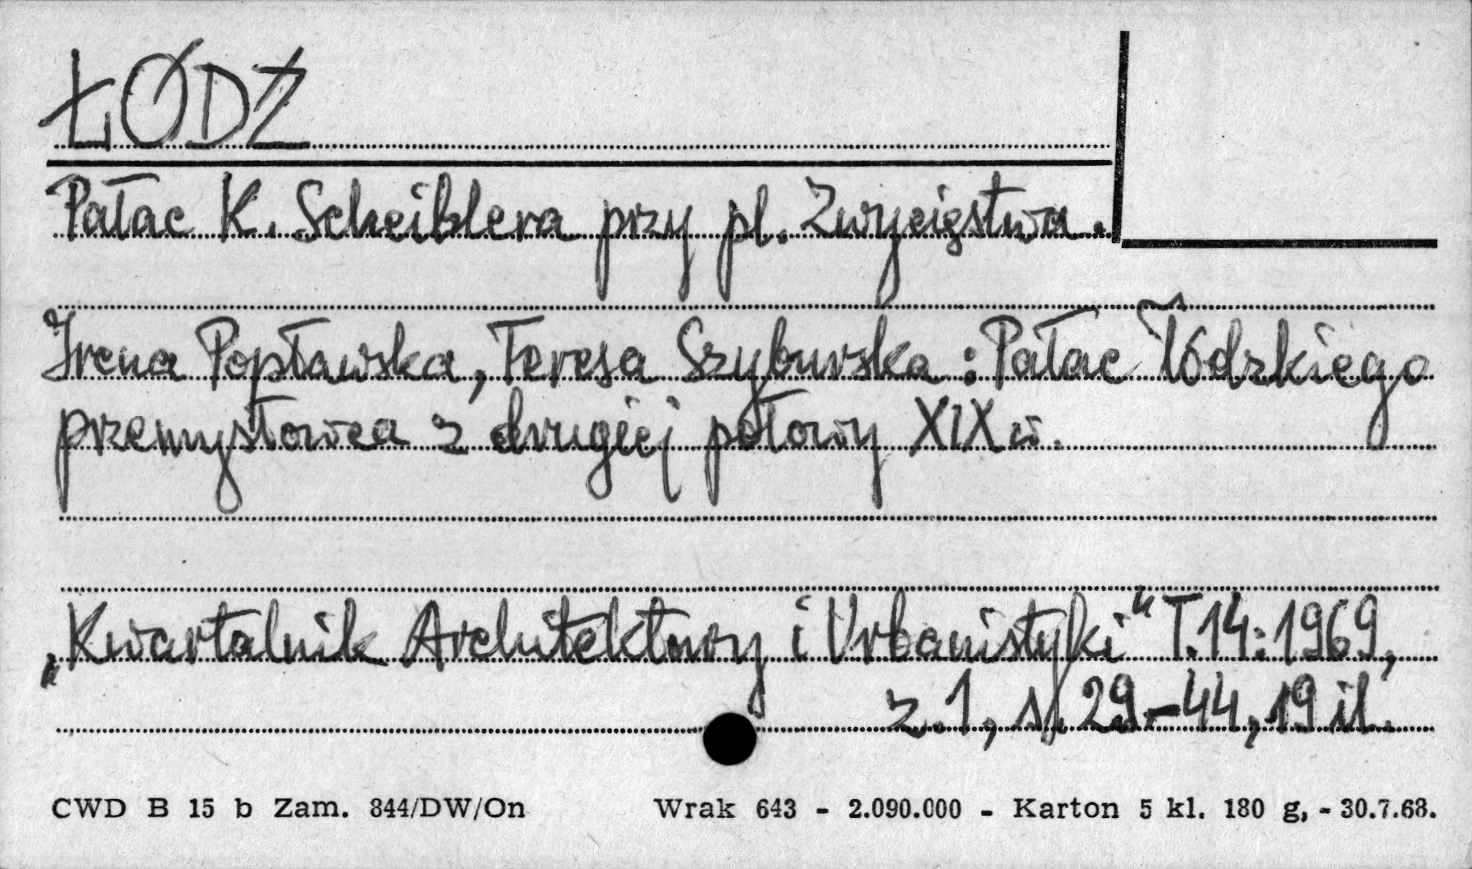 ŁÓDŹ
Pałac K. Scheiblera przy pl. Zwycięstwa.
Irena Popławska, Teresa Szyburska: Pałac łódzkiego
przemysłowca z drugiej połowy XIX w.
„Kwartalnik Architektury i Urbanistyki" T.14:1969,
z.1, s. 29-44, 19 il.
CWD B 15 b Zam. 844/DW/On Wrak 643 - 2.090.000 - Karton 5 kl. 180 g, - 30.7.68.